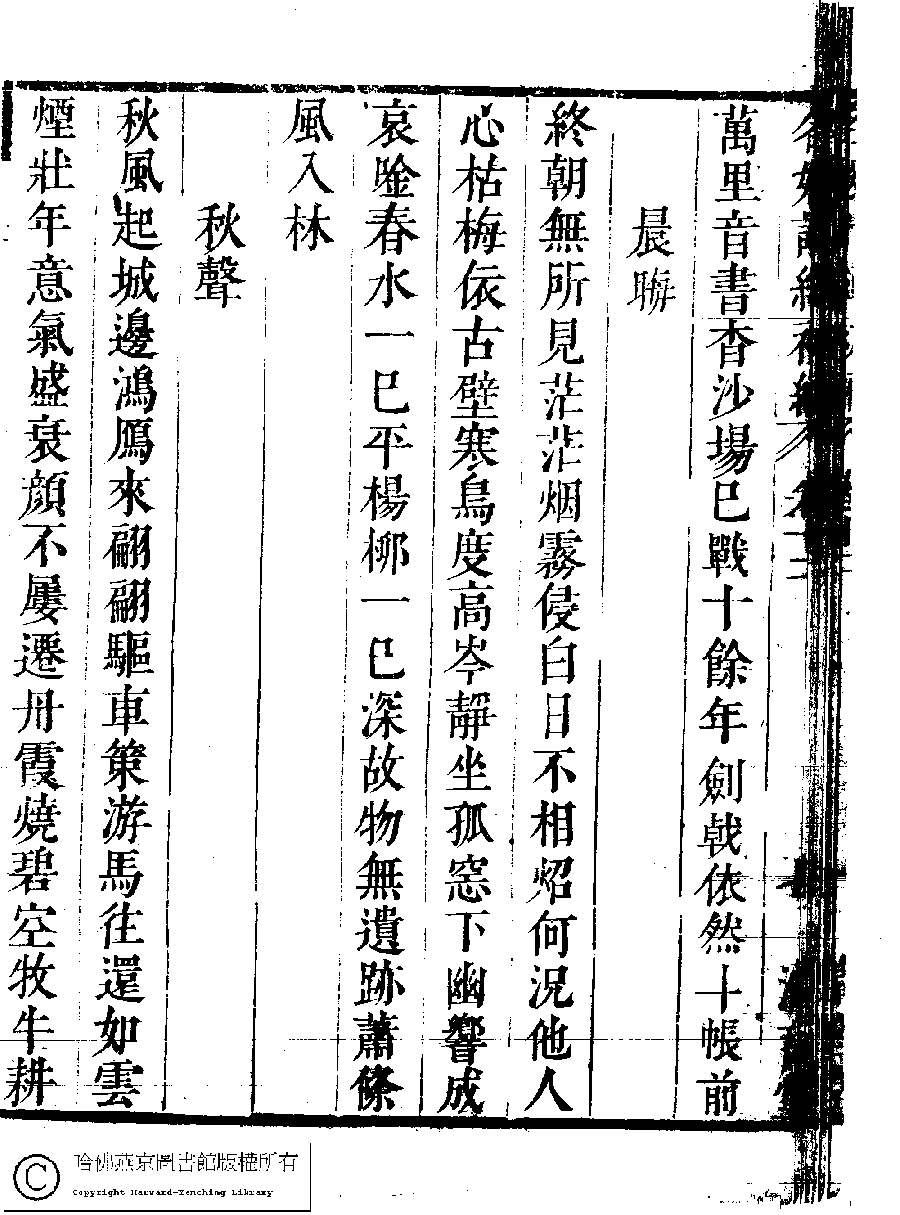 萬里音書杳沙場已戰十餘年劍戟依然十帳前
晨聨
終朝無所見茫茫烟霧侵白日不相炤何況他人
心枯梅依古壁寒鳥度高岑靜坐孤窓下幽響成
哀唫春水一已平楊柳一已深故物無遺跡蕭條
風入林
秋聲
秋風起城邊鴻鴈來翩翩驅車策游馬往還如雲
煙壯年意氣盛衰顏不屢遷丹霞燒碧空牧牛耕
哈佛燕京圖書館版權所有
Copyright Harvard-Yenching Library